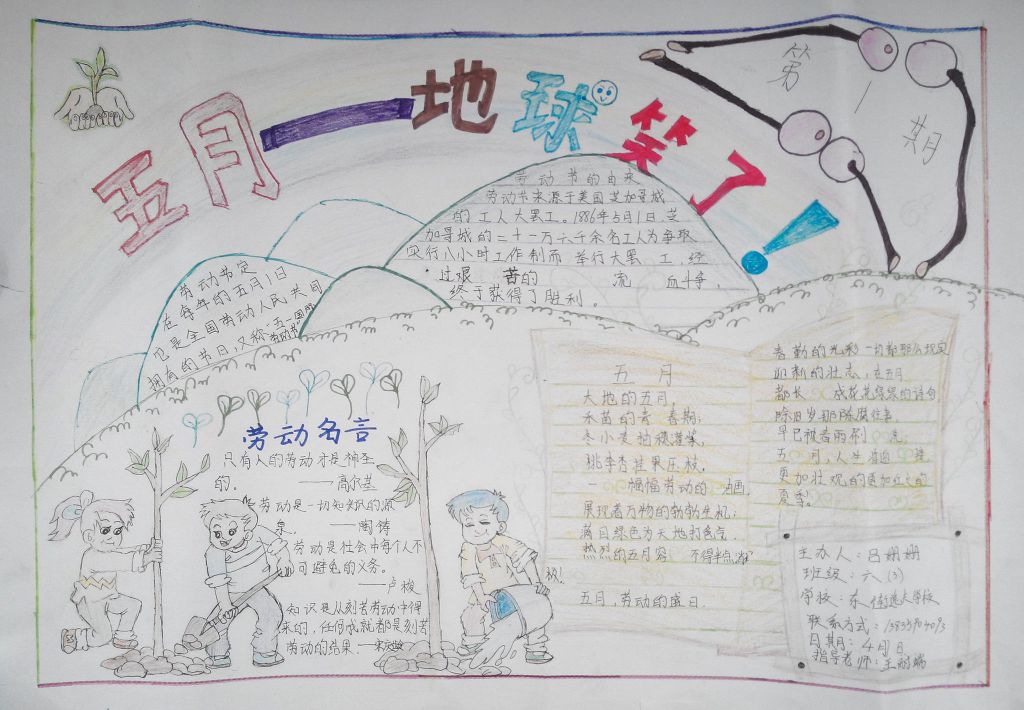 五月一地球笑了!
第一期
劳动节的由来
劳动节来源于美国芝加哥城
的工人大罢工。1886年5月1日,芝
加哥城的二十一万六千余名工人为争取
实行八小时工作制而举行大罢工,经
过艰苦的流血斗争,
终于获得了胜利。
劳动节定
在每年的五月1日
也是全国劳动人民共同
拥有的节日,又称"五一国际
劳动节
劳动名言
只有人的劳动才是神圣
的.——高尔基
劳动是一切知识的源
泉.——陶铸
劳动是社会中每个人不
可避免的义务。
——卢梭
知识是从刻苦劳动中得
来的,任何成就都是刻苦
劳动的结果.
五月
大地的五月,
禾苗的青春期;
冬小麦抽穗灌浆,
桃李杏挂果压枝.
一幅幅劳动的油画,
展现着万物的勃勃生机;
满目绿色为大地打色气
热烈的五月容不得半点
五月,劳动的盛日.
春勤的光彩一切都那么现实
迎新的壮志,在五月
都长成花花绿绿的诗句
除旧岁那陈腐往事
早已被春雨刷洗
五月,人生
更加壮观的更加
夏季!
主办人:吕姗姗
班级:六(3)
学校:东街逸夫学校
联系方式:
日期:4月日
指导老师:王